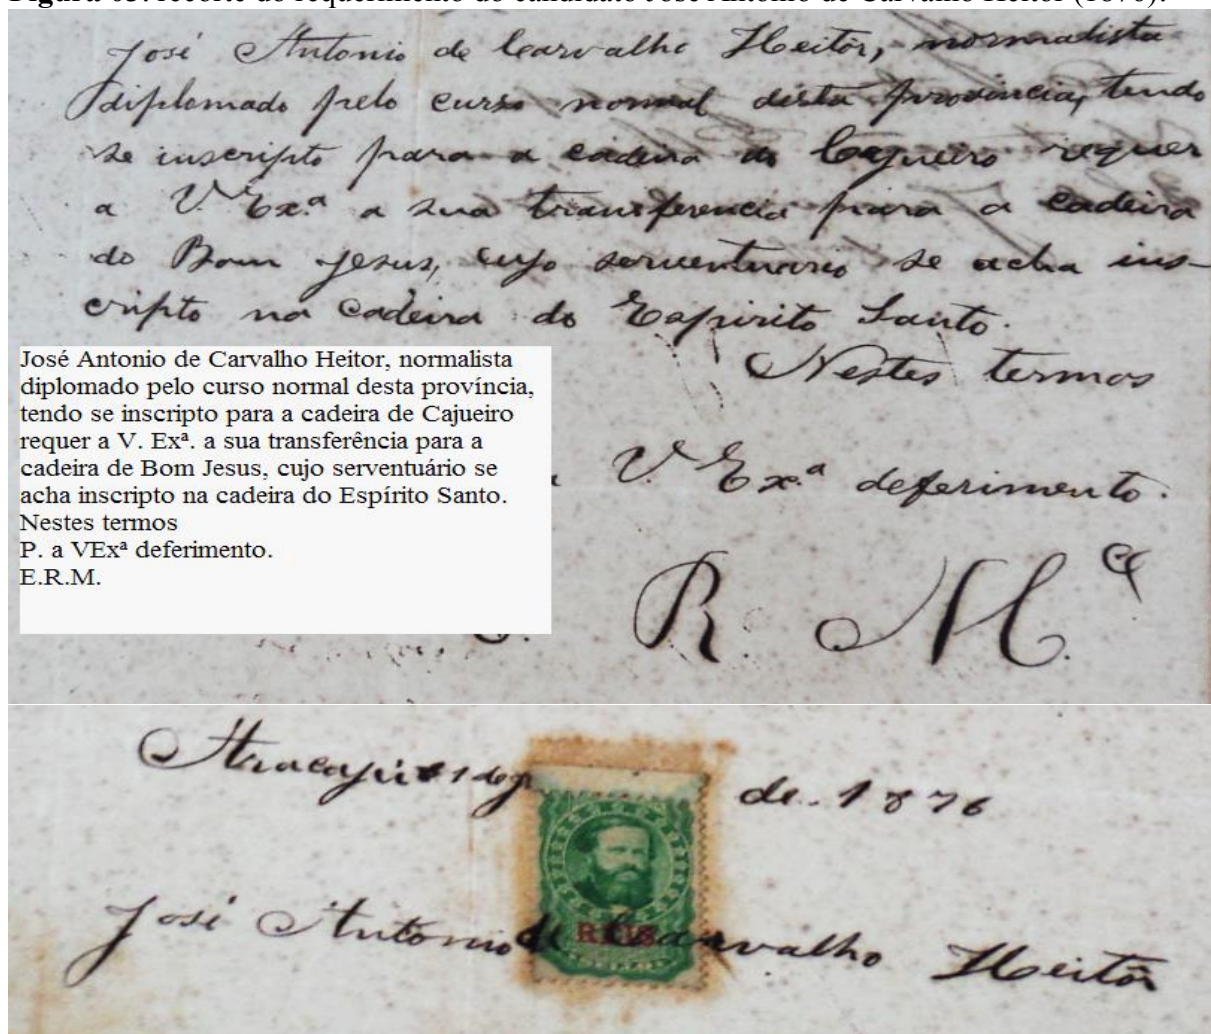 Figura 03: recorte do requerimento do candidato José Antonio de Carvalho Heitor (1876).
José Antonio de Carvalho Heitor, normalista
diplomado pelo curso normal desta provincia, tendo
se inscripto para a cadeira do Cajueiro requer
a V. Exª a sua transferencia para a cadeira
do Bom Jesus, cujo serventuario se acha ins-
cripto na cadeira do Espirito Santo.
Nestes termos
V. Exª deferimento.
R. M.
José Antonio de Carvalho Heitor, normalista
diplomado pelo curso normal desta província,
tendo se inscripto para a cadeira de Cajueiro
requer a V. Exª. a sua transferência para a
cadeira de Bom Jesus, cujo serventuário se
acha inscripto na cadeira do Espírito Santo.
Nestes termos
P. a VExª deferimento.
E.R.M.
Aracajú de 1876
REIS
José Antonio de Carvalho Heitor